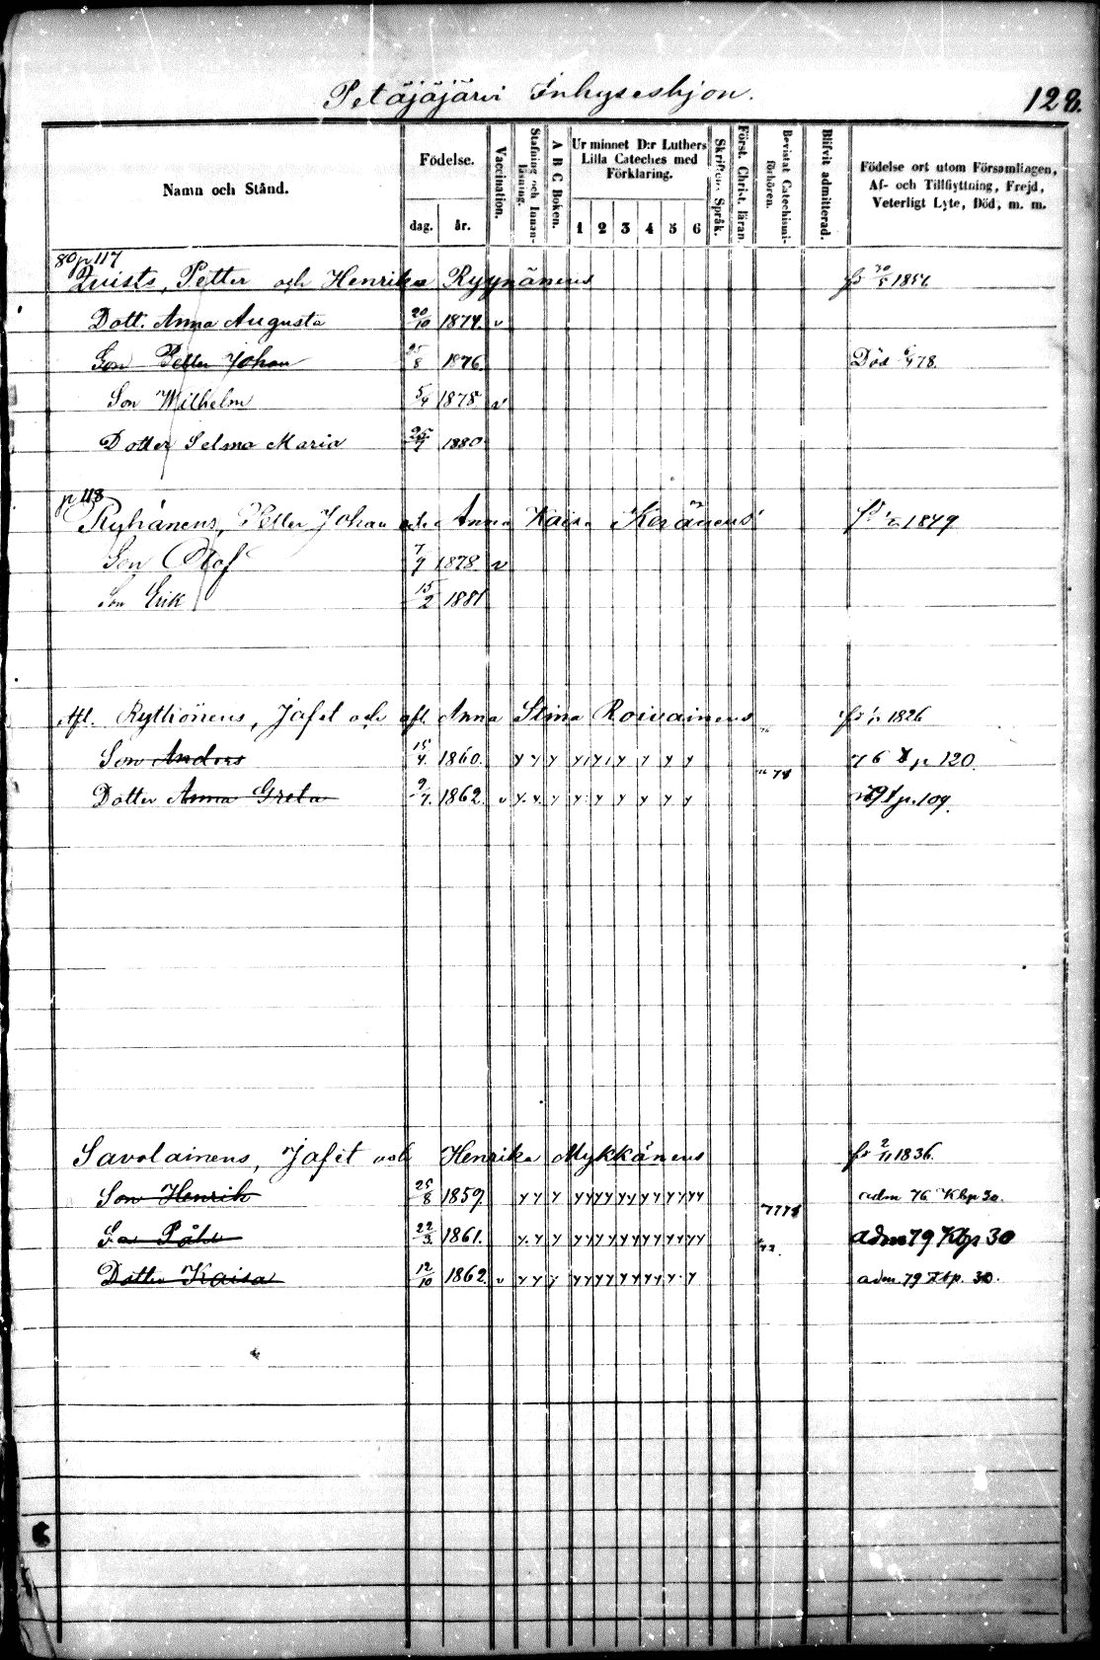 Petäjäjärvi Inhyseshjon. 128.
Namn och Stånd.
Födelse.
dag. år.
Vaccination.
Stafning och Innanläsning.
A B C Boken.
Ur minnet D:r Luthers Lilla Cateches med Förklaring.
1 2 3 4 5 6
Skriftens Språk.
Först. Christ. läran.
Bevistat Catechismi-förhören.
Blifvit admitterad.
Födelse ort utom Församlingen, Af- och Tillflyttning, Frejd, Veterligt Lyte, Död, m. m.
80 p 117
Qvists, Petter och Henrika Ryynänens 1851
Dott. Anna Augusta 20/10 1874. v
Son Petter Johan 25/8 1876 Död 78.
Son Wilhelm 5/4 1878 v
Dotter Selma Maria 1880
p 118
Ryhänens, Petter Johan och Anna Kaisa Keränens 1849
Son Olof 7/9 1878 v
Son Erik 15/2 1881
Afl. Ryttiönens, Jafet och afl. Anna Stina Roivainens 1826
Son Anders 15/4. 1860. y y y y y y y y y 76 p 120.
Dotter Anna Greta 1862. v y y y y y y y y y p. 109.
Savolainens, Jafet och Henrika Mykkänens 2/11 1836.
Son Henrik 25/8 1859. y y y yy yy yy yy yy yy adm 76 Kbp 30.
Son Påhl 22/3 1861. y y y yy yy yy yy yy yy adm 79 Kbp 30
Dotter Kaisa 12/10 1862. v y y y yy yy yy yy y y adm. 79 Kbp. 30.